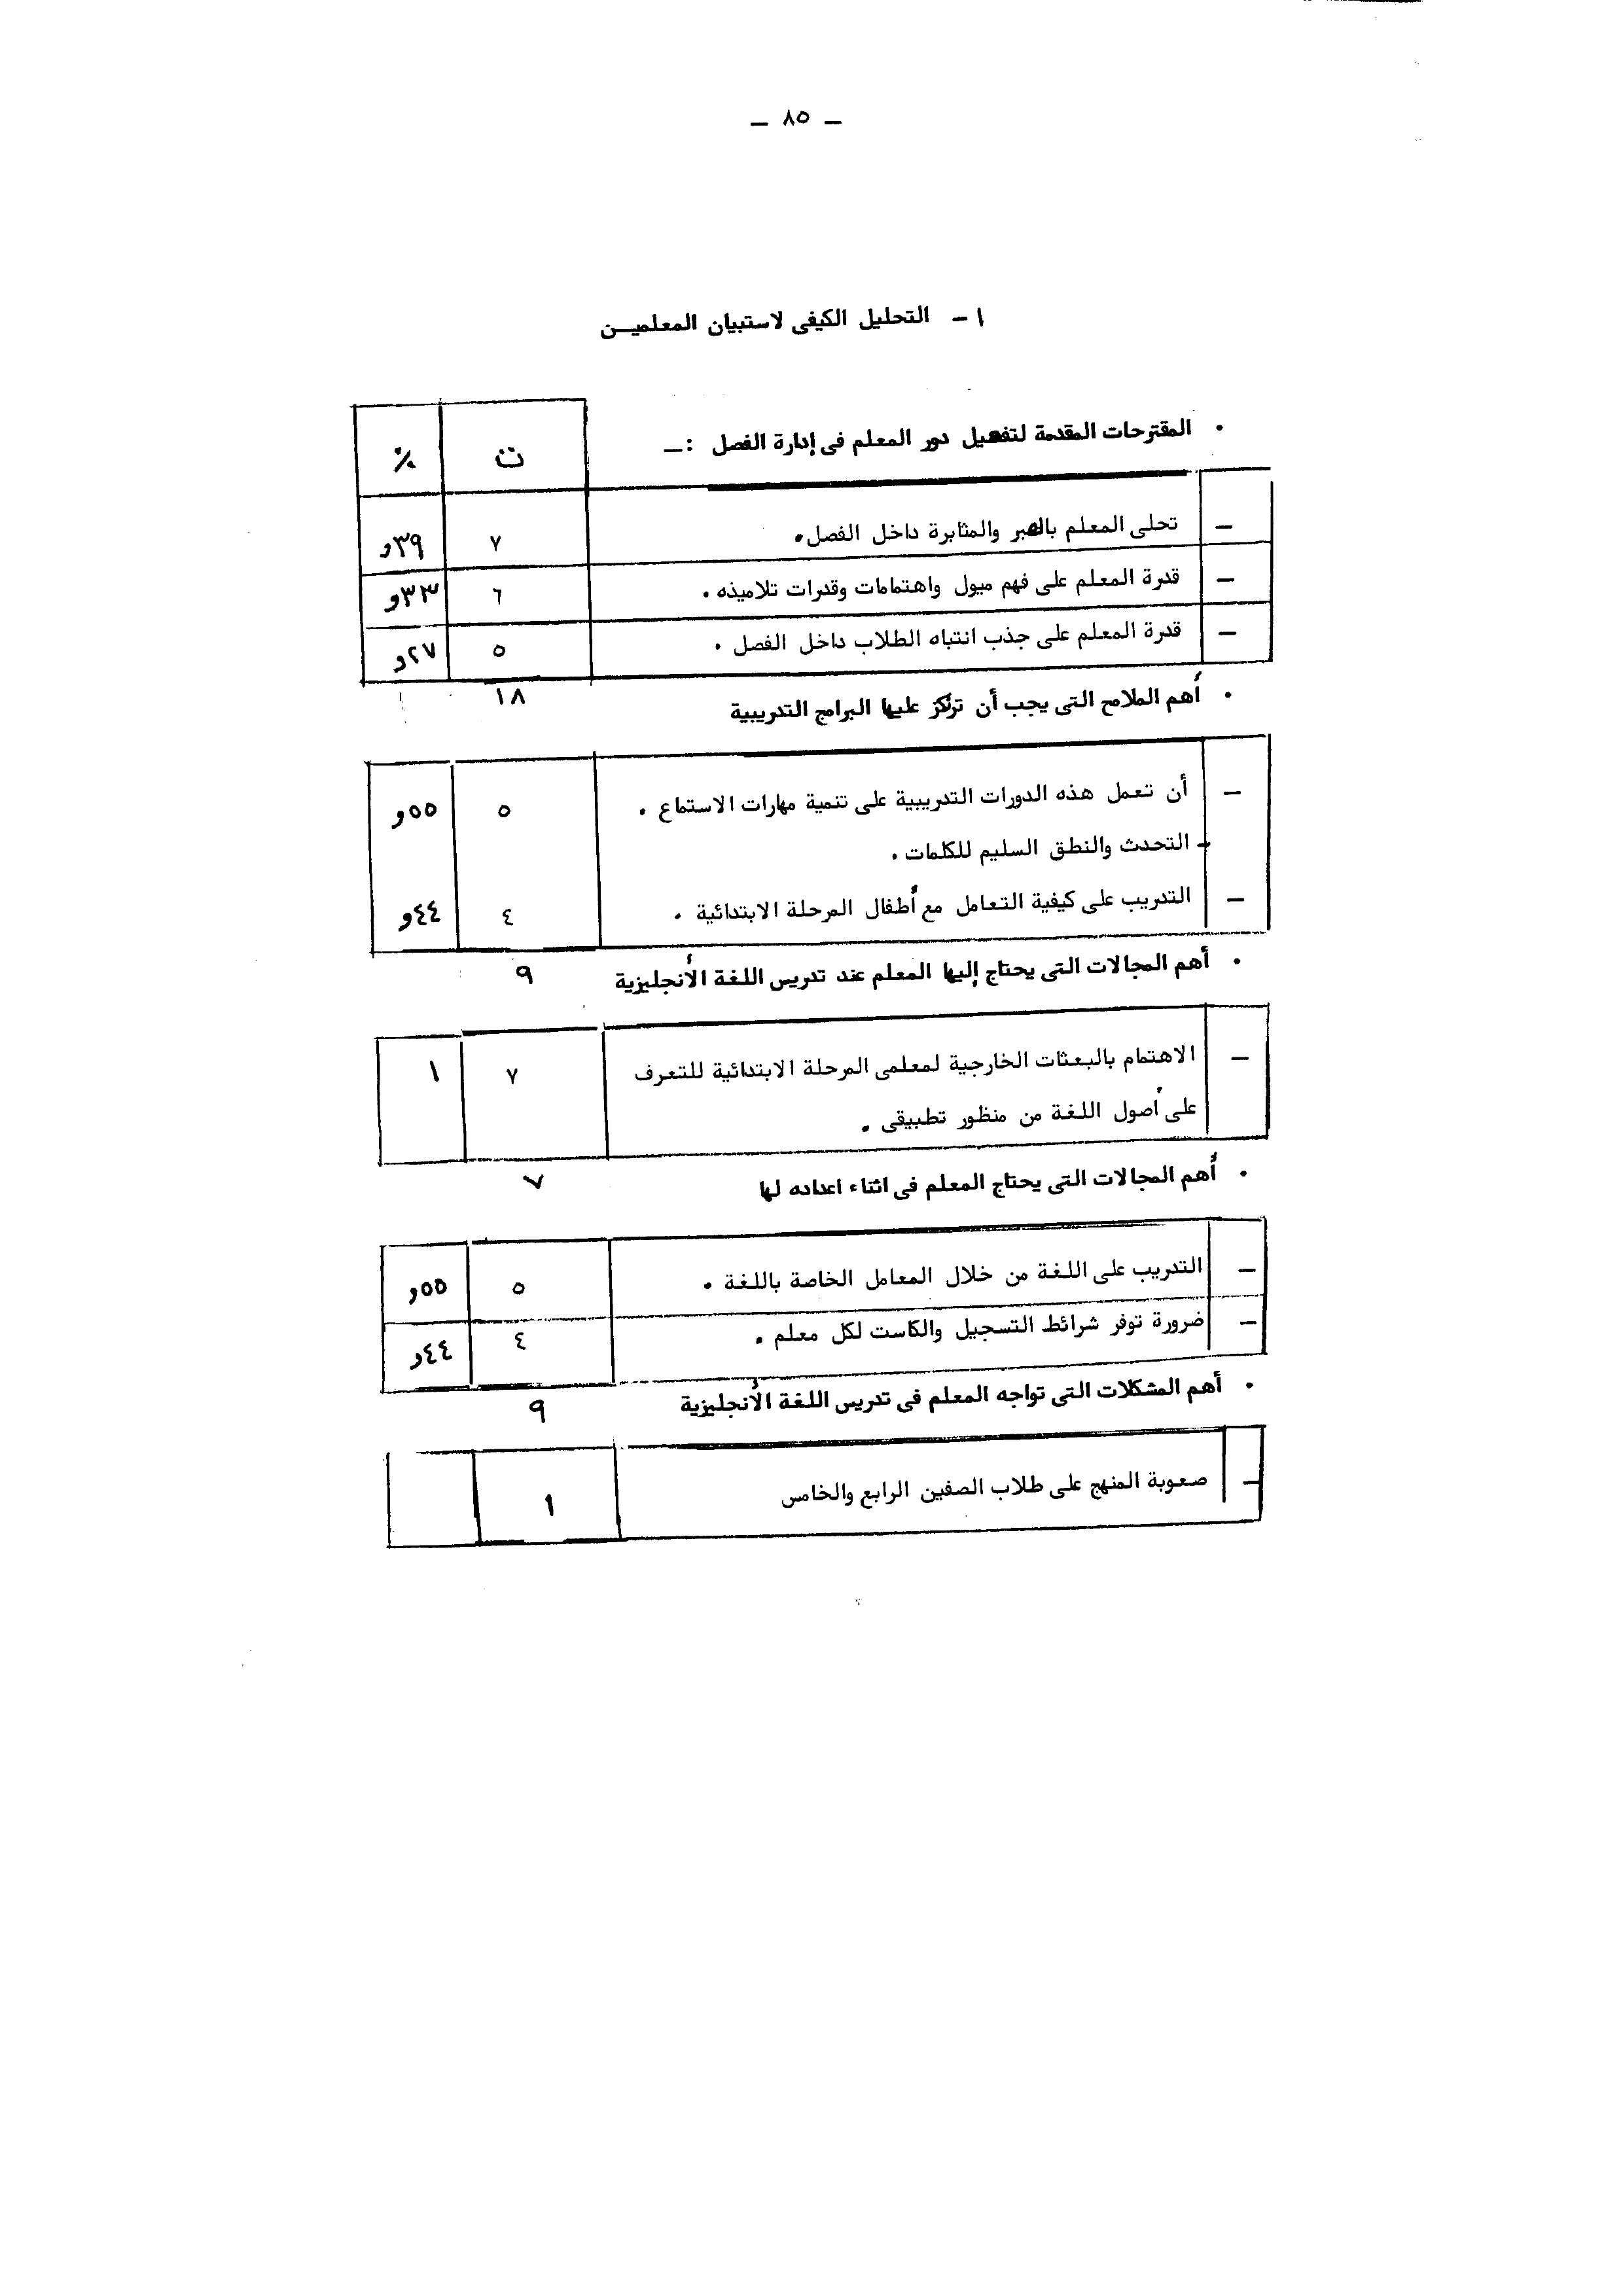 ـ ٨٥ ـ
١ - التحليل الكيفى لاستبيان المعلميــن
• المقترحات المقدمة لتفعيل دور المعلم فى إدارة الفصل :ـ ت ٪
ـ تحلى المعلم بالصبر والمثابرة داخل الفصل. ٧ ٣٩و
ـ قدرة المعلم على فهم ميول واهتمامات وقدرات تلاميذه . ٦ ٣٣و
ـ قدرة المعلم على جذب انتباه الطلاب داخل الفصل . ٥ ٢٧و
١٨
• أهم الملامح التى يجب أن تركز عليها البرامج التدريبية
ـ أن تعمل هذه الدورات التدريبية على تنمية مهارات الاستماع . ٥ ٥٥و
- التحدث والنطق السليم للكلمات .
ـ التدريب على كيفية التعامل مع أطفال المرحلة الابتدائية . ٤ ٤٤و
• أهم المجالات التى يحتاج إليها المعلم عند تدريس اللغة الأنجليزية ٩
ـ الاهتمام بالبعثات الخارجية لمعلمى المرحلة الابتدائية للتعرف ٧ ١
على أصول اللغة من منظور تطبيقى .
• أهم المجالات التى يحتاج المعلم فى اثناء اعداده لها ٧
ـ التدريب على اللغة من خلال المعامل الخاصة باللغة . ٥ ٥٥و
ـ ضرورة توفر شرائط التسجيل والكاست لكل معلم . ٤ ٤٤و
• أهم المشكلات التى تواجه المعلم فى تدريس اللغة الأنجليزية ٩
ـ صعوبة المنهج على طلاب الصفين الرابع والخامس ١